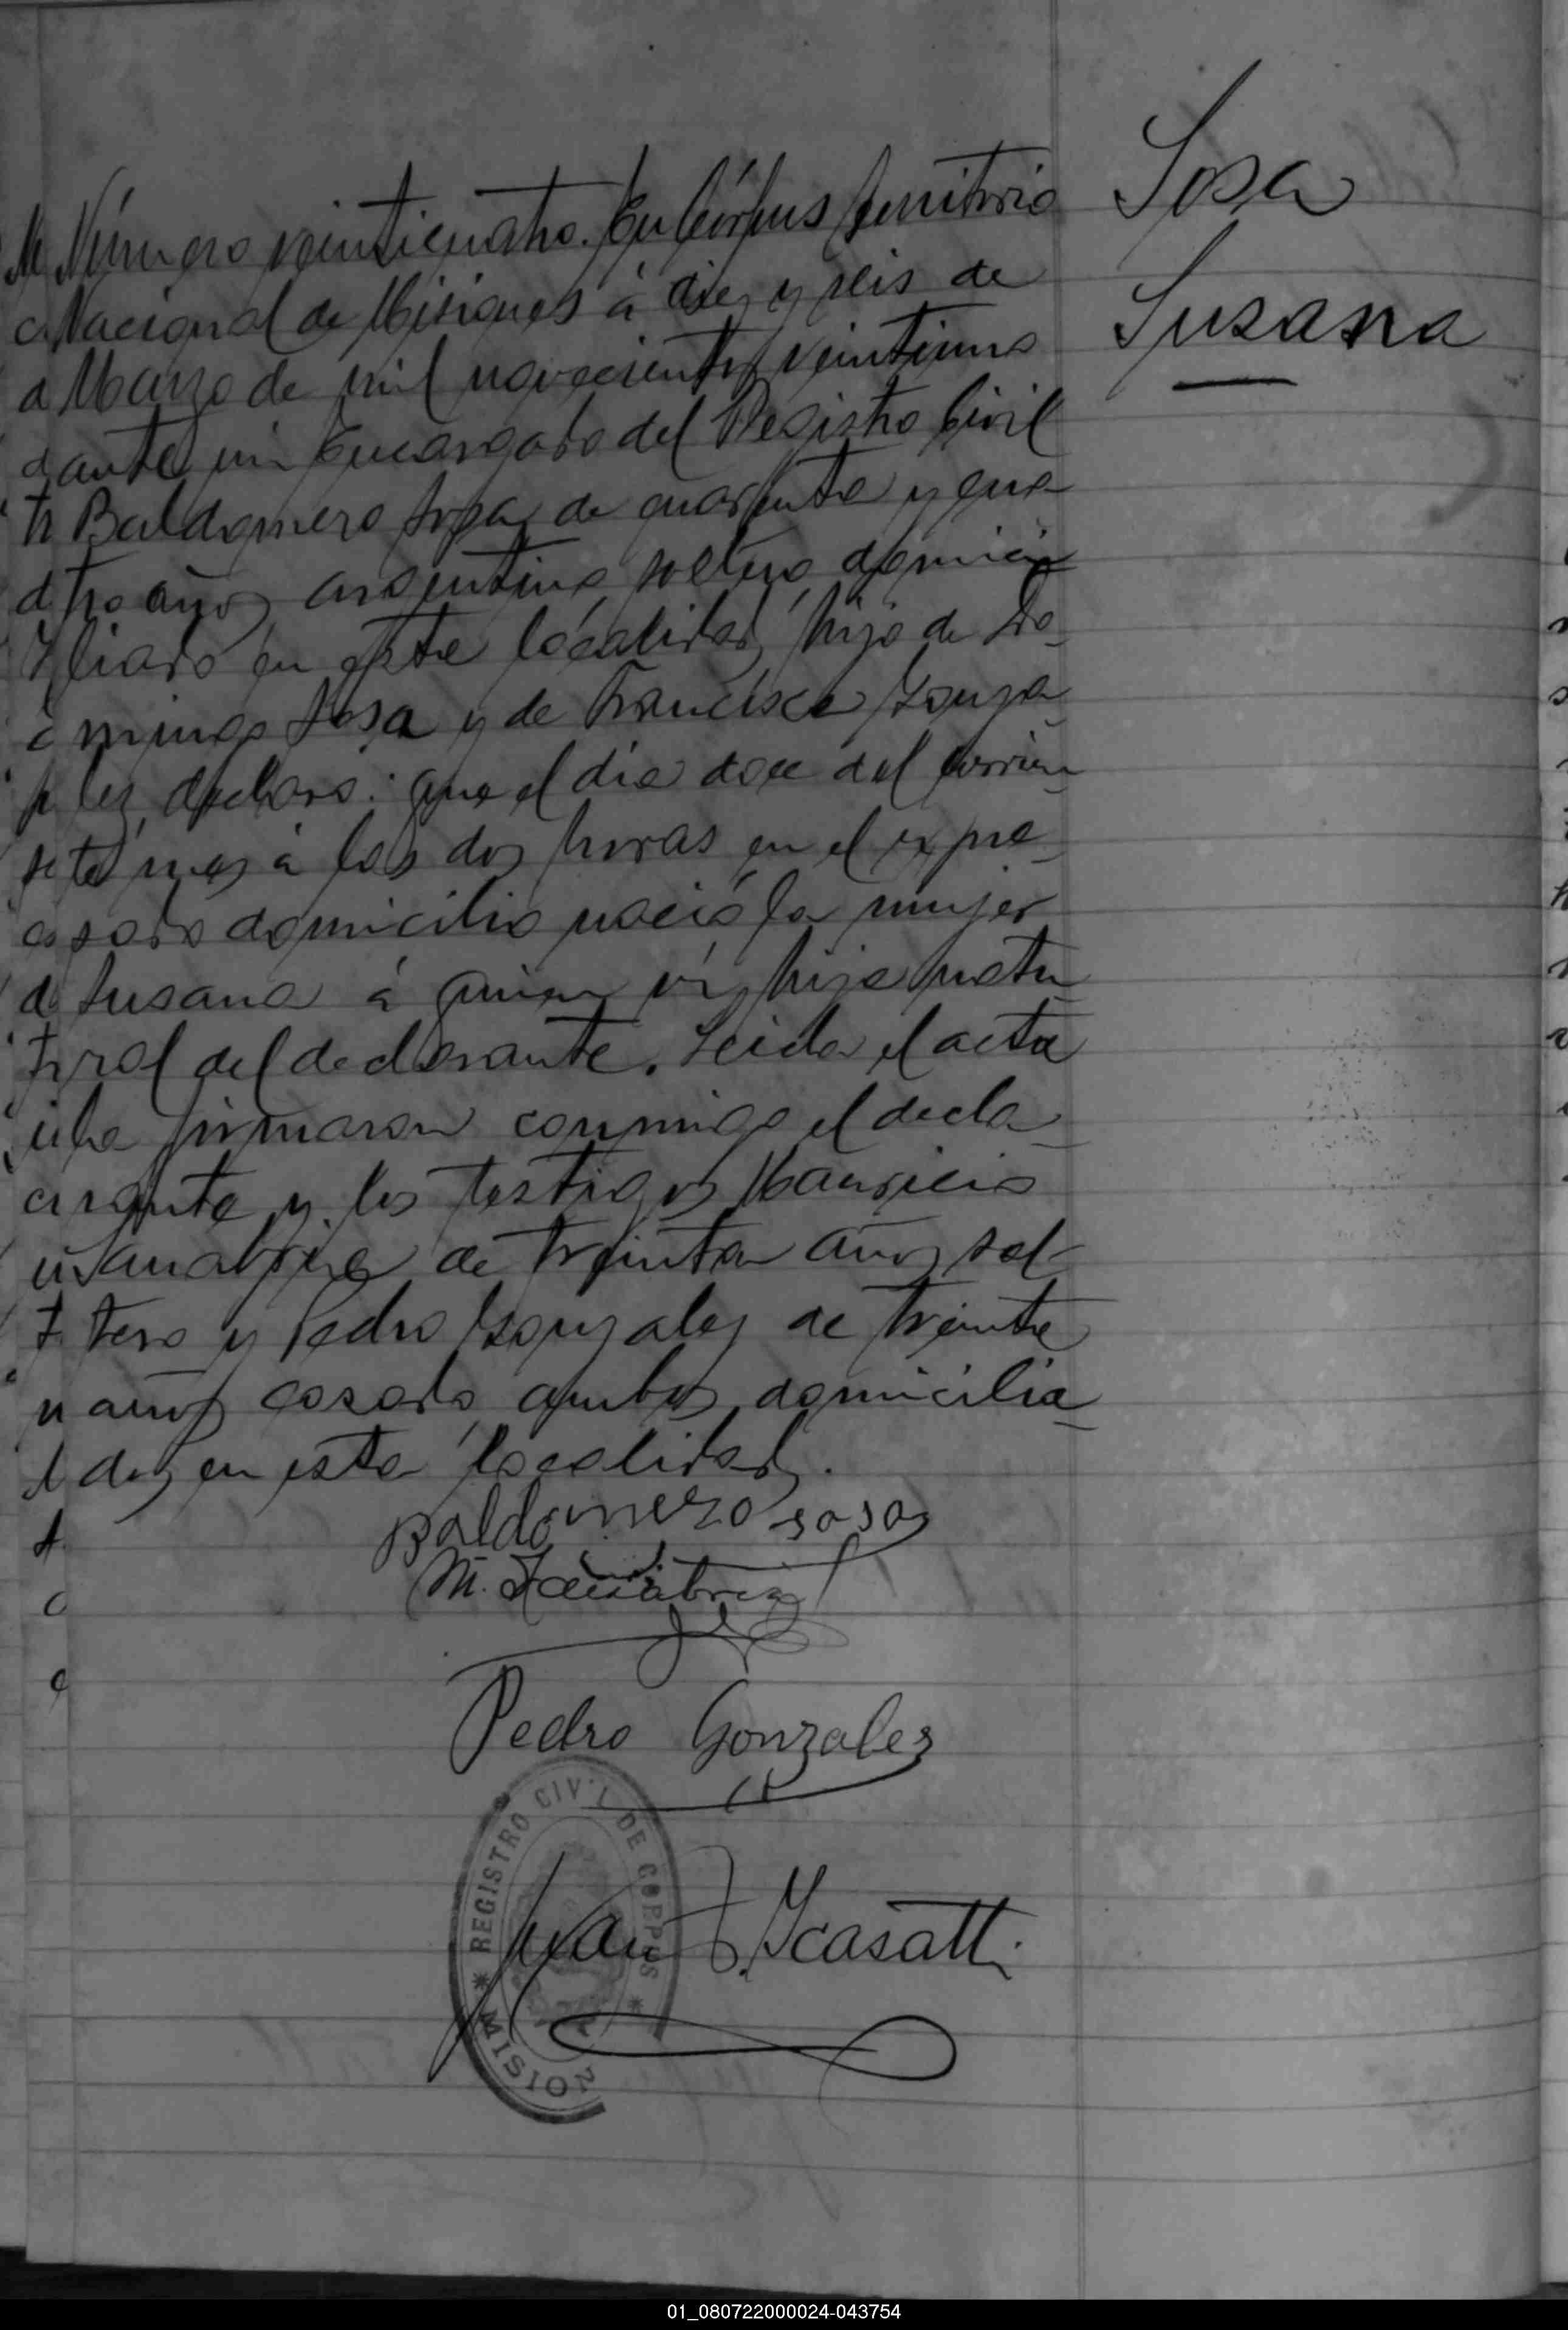 Sosa
Susana
Número veinticuatro. En Córpus Territorio
Nacional de Misiones á diez y seis de
Marzo de mil novecientos veintiuno
ante mi Encargado del Registro Civil
Baldomero Sosa, de cuarenta y cua-
tro años, argentino, soltero, domici-
liado en esta localidad, hijo de Do-
mingo Sosa y de Francisca Gonza-
lez, declaró: que el dia doce del corrien-
te mes á las dos horas en el expre-
sado domicilio nació la mujer
Susana á quien vi, hija natu-
ral del declarante. Leida el acta
la firmaron conmigo el decla-
rante y los testigos Mauricio
Sanabria de treinta años sol-
tero y Pedro Gonzalez de treinta
años casado, ambos domicilia-
dos en esta localidad.
Baldomero sosa
M. Sanabria
Pedro Gonzales
REGISTRO CIVIL DE CORPUS
MISION
Juan J. Icasatti
01_080722000024-043754